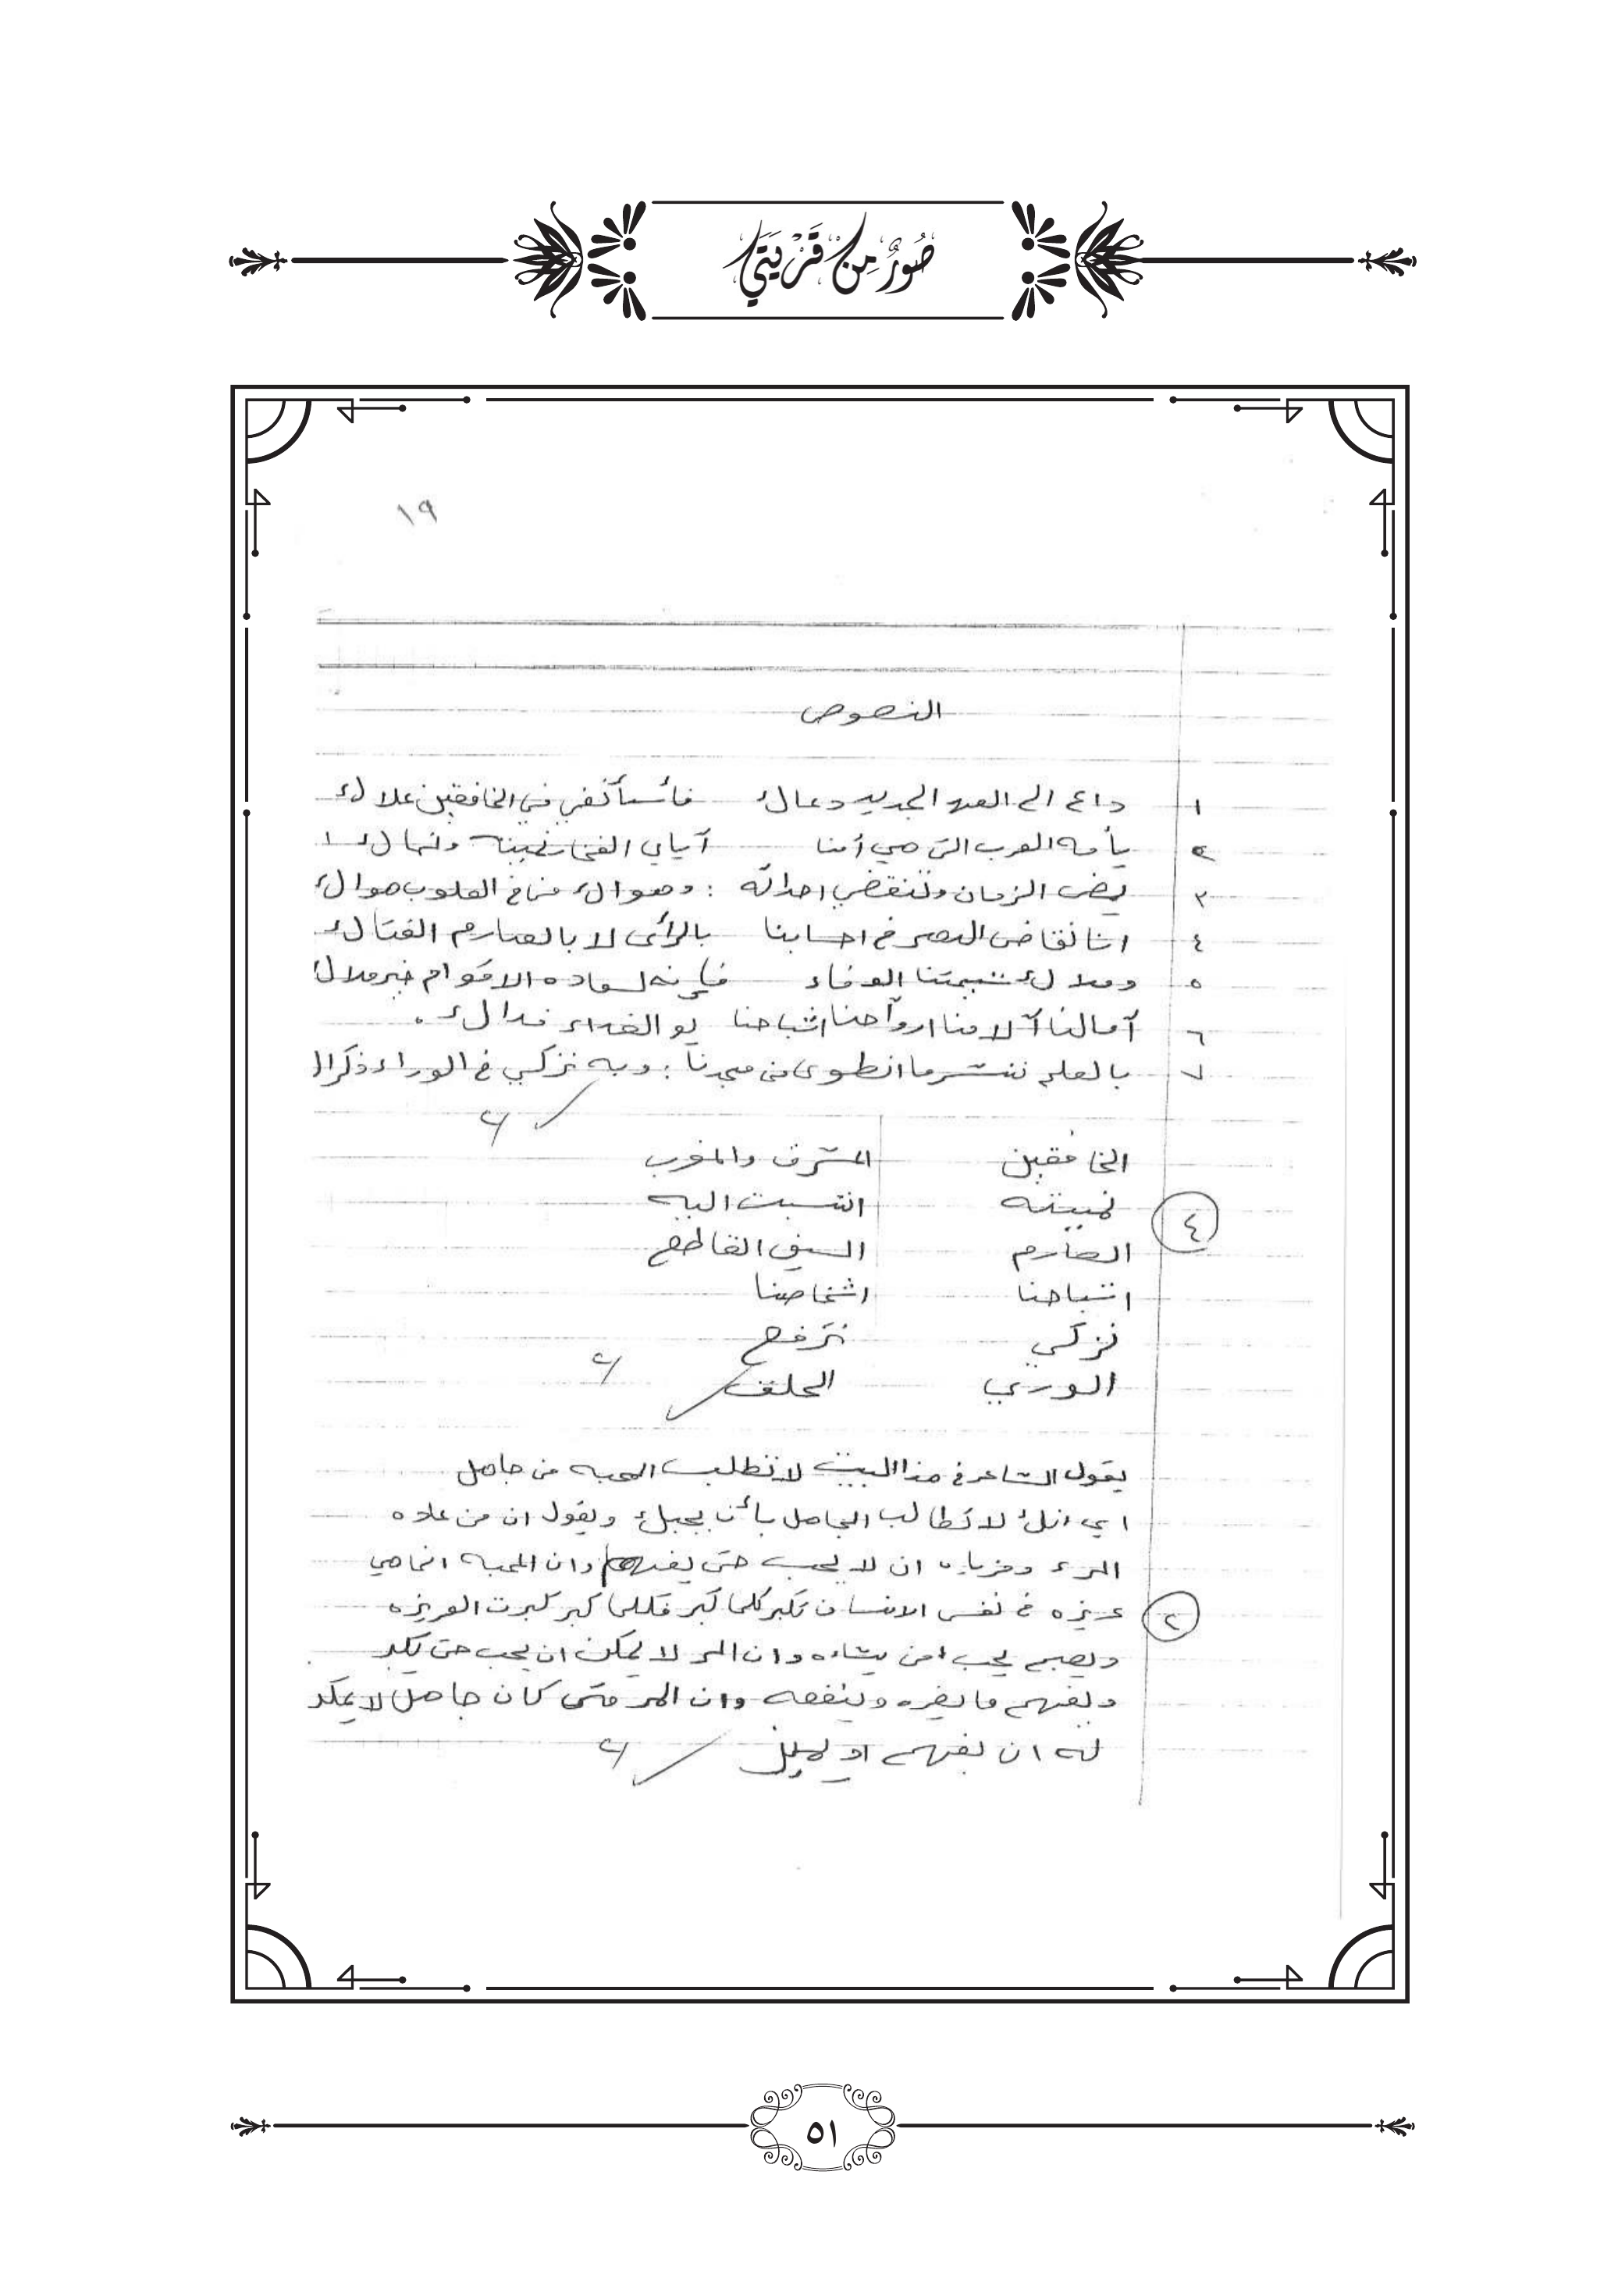 صُوَرٌ مِنْ قَرْيَتِي
١٩
النصوص
١ داع الى العهد الجديد دعاك فأستأنفي في الخافقين علاك
٢ يأمه العرب التي هي أمنا آياي الفخار نميته ونماك
٣ يمضى الزمان وتنقضي احداثه : وهواك منا في القلوب هواك
٤ انا نقاضى النصر في احسابنا بالرأى لا بالصارم الفتاك
٥ وملاك شيمتنا الوفاء فإنه لسعاده الاقوام خير ملاك
٦ آمالنا آلامنا ارواحنا اشباحنا يو الفداء فداك .
٧ بالعلم ننشر ما انطوى من مجدنا : وبه نزكي في الوراء ذكراك
الخافقين المشرق والمغرب
نميته انتسبت اليه
٤
الصارم السيف القاطع
اشباحنا اشخاصنا
نزكي نرفع
الوري الخلق
يقول الشاعر في هذا البيت لا تطلب المحبه من جاهل
اي انك لا تطالب الجاهل بأن يحبك ويقول ان من عاده
المرء ان لا يحب حتى يفهم وان المحبه انما هي
٢ غريزه في نفس الانسان تكبر كلما كبر فكلما كبر كبرت الغريزه
ويصبح يحب من يشاء وان المر لا يمكن ان يحب حتى يكبر
ويفهم ما يضره وينفعه وان المر متى كان جاهل لا يمكن
له ان يفهم او
٥١